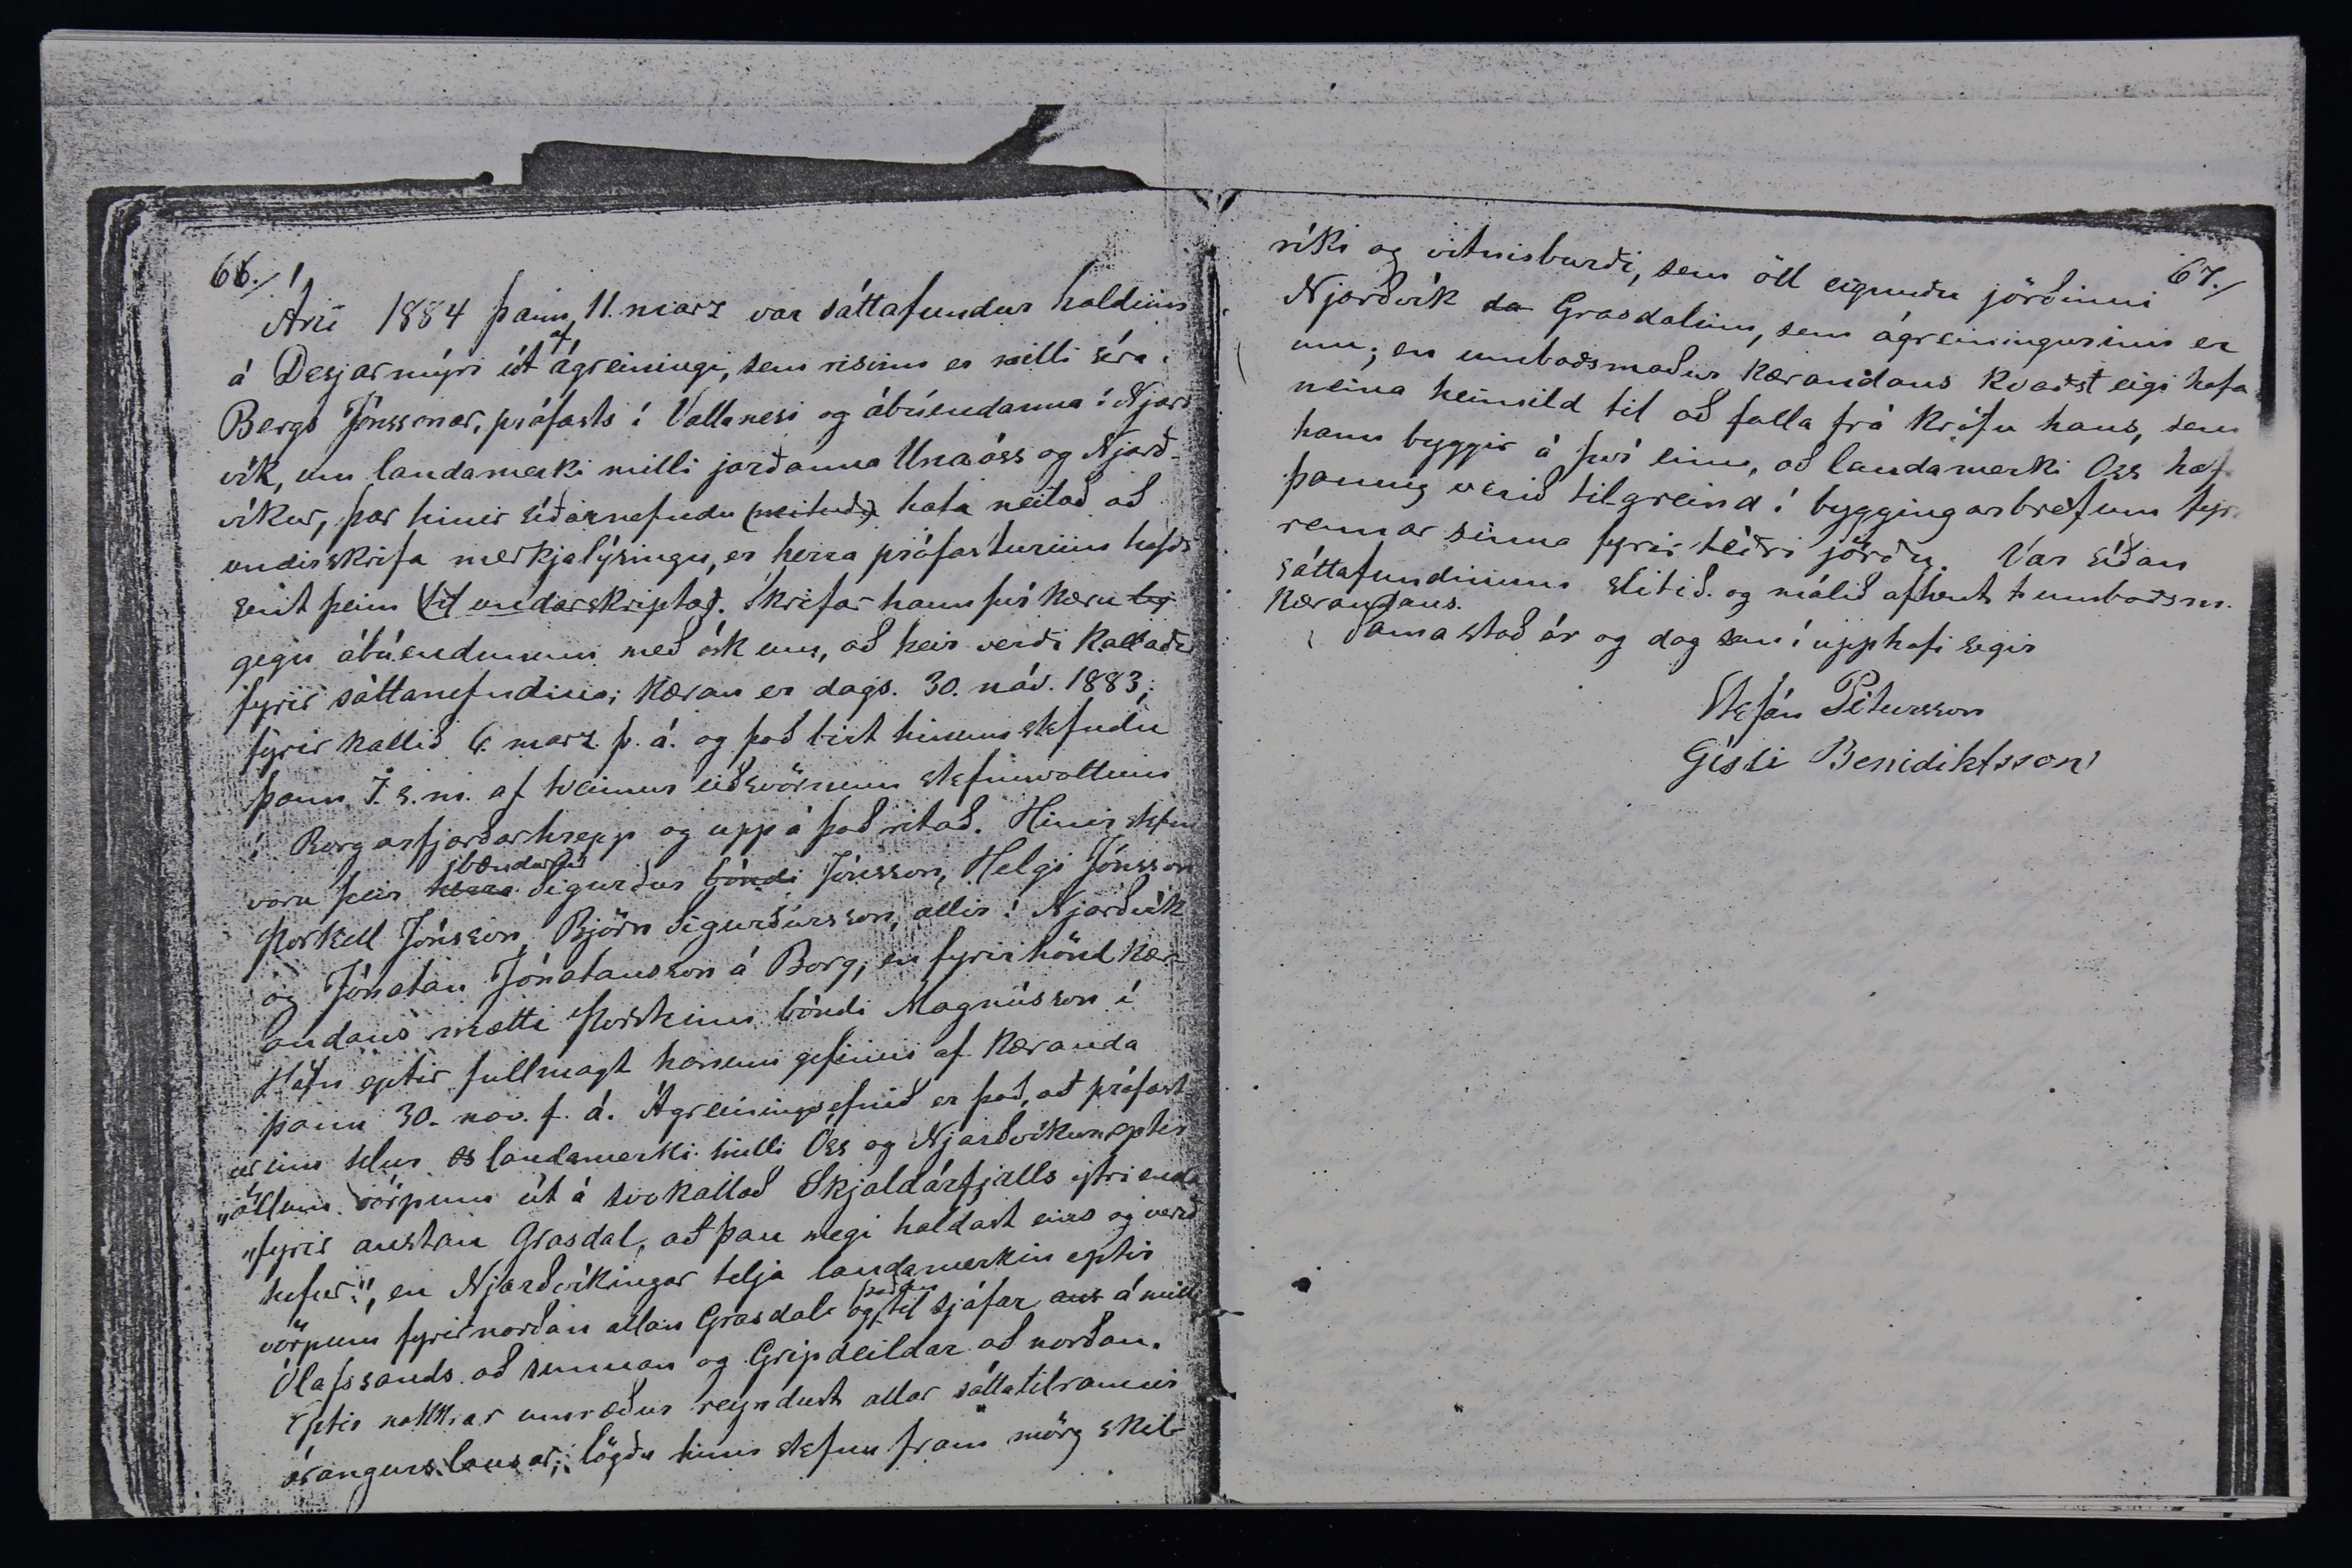 66./
Árið 1884 þann 11. marz var sáttafundur haldinn
á Desjarmýri út af ágreiningi, sem risinn er milli séra
Bergs Jónssonar, prófasts í Vallanesi og ábúendanna í Njarð
vík, um landamerki milli jarðanna Unaóss og Njarð-
víkur, þar hinir síðarnefndu (neituð) hafa neitað að
undirskrifa merkjalýsingu, er herra prófasturinn hafði
sent þeim til undirskriptar. Skrifar hann því kæru
gegn ábúendunum með ósk um, að þeir verði kallaðir
fyrir sáttanefndina; kæran er dags. 30. nóv. 1883;
fyrirkallið 6. marz þ. á. og það birt hinum stefndu
þann 7. s. m. af tveimur eiðsvörnum stefnuvottum
í Borgarfjarðarhrepp og upp á það ritað. Hinir stefn
voru þeir herra bændurnir Sigurður bóndi Jónsson, Helgi Jónsson
Þorkell Jónsson, Björn Sigurðursson, allir í Njarðvík
og Jónatan Jónatansson á Borg; en fyrir hönd kær-
andans mætti Þorsteinn bóndi Magnússon í
Höfn eptir fullmagt honum gefinni af kæranda
þann 30. nov. f. á. Ágreiningsefnið er það, að prófast
urinn telur landamerki milli Óss og Njarðvíkur eptir
„öllum vörpum út á svokallað Skjaldárfjalls ytri enda
„fyrir austan Grasdal, að þau megi haldast eins og verið
hefur“, en Njarðvíkingar telja landamerkin eptir
vörpum fyrir norðan allan Grasdal og til sjáfar á milli
Ólafssands að sunnan og Gripdeildar að norðan.
Eptir nokkrar umræður reyndust allar sáttatilraunir
árangurslausar; lögðu hinir stefnu fram mörg skil-
67./
ríki og vitnisburði, sem öll eignuðu jörðinni
Njarðvík da Grasdalinn, sem ágreiningurinn er
um; en umboðsmaður kærandans kvaðst eigi hafa
neina heimild til að falla frá kröfu hans, sem
hann byggir á því einu, að landamerki Oss haf
þannig verið tilgreind í byggingarbréfum fyr
rennar sinna fyrir téðri jörðu. Var síðan
sáttafundinum slitið og málið afhent umboðsm.
kærandans.
Sama stað ár og dag sem í upphafi segir
Stefán Pétursson
Gísli Benidiktsson